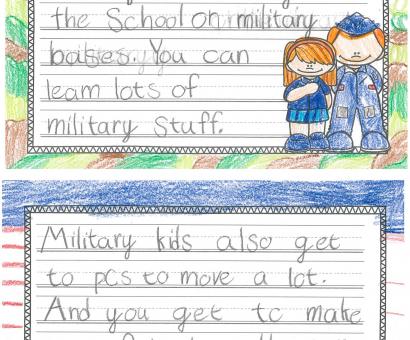 the School on military
bases. You can
learn lots of
military stuff.
Military kids also get
to pcs to move a lot.
And you get to make